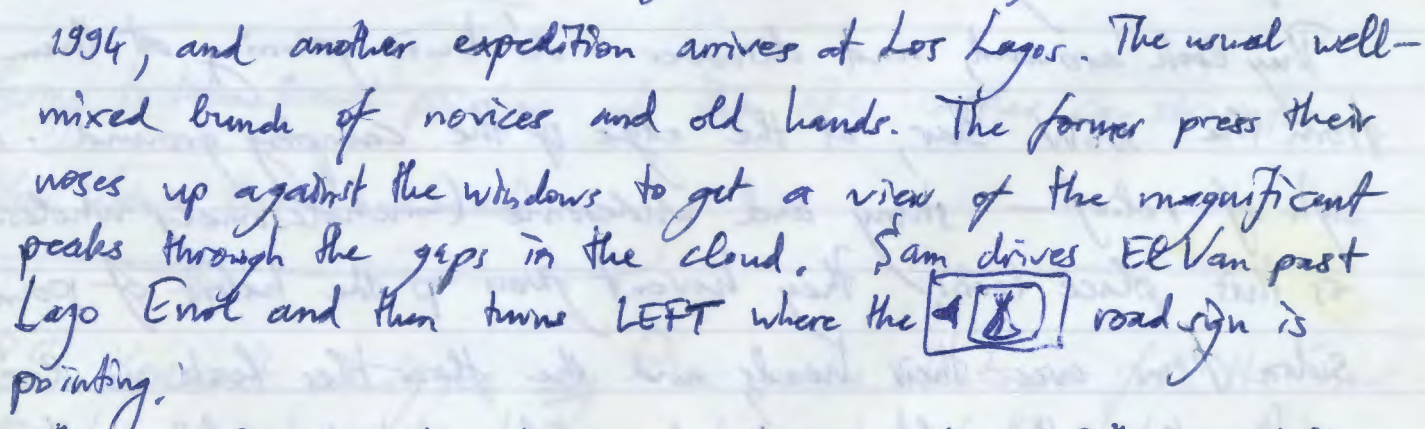 1994, and another expedition arrives at Los Lagos. The usual well-
mixed bunch of novices and old hands. The former press their
noses up against the windows to get a view of the magnificent
peaks through the gaps in the cloud. Sam drives El Van past
Lago Enol and then turns LEFT where the road sign is
pointing.